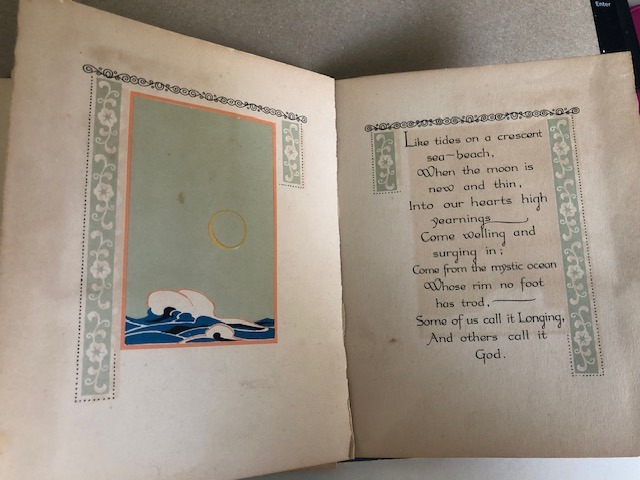 Enter
Like tides on a crescent
sea-beach,
When the moon is
new and thin,
Into our hearts high
yearnings
Come welling and
surging in;
Come from the mystic ocean
Whose rim no foot
has trod,
Some of us call it Longing,
And others call it
God.